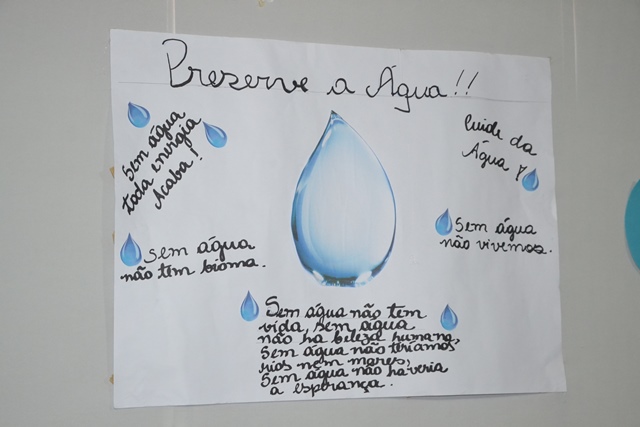 Preserve a Água!!
Sem água
toda energia
Acaba!
Cuide da
Água!
Sem água
não têm bioma.
Sem água
não vivemos.
Sem água não tem
vida, sem água
não ha beleza humana,
Sem água não teriamos
rios nem mares,
Sem água não haveria
a esperança.